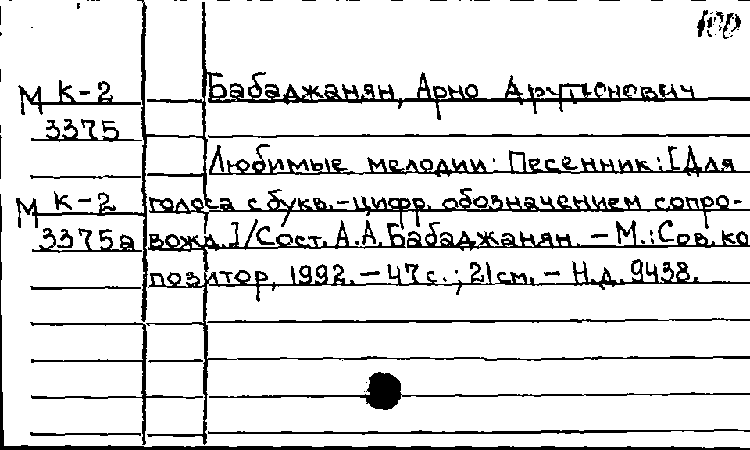 100
М К-2 Бабаджанян, Арно Арутюнович
3375
Любимые мелодии: Песенник: [Для
М К-2 голоса с букв.-цифр. обозначением сопро-
3375а вожд.]/Сост. А.А.Бабаджанян. – М.: Сов. ко
позитор, 1992. – 47 с.; 21 см. – Н.д. 9438.